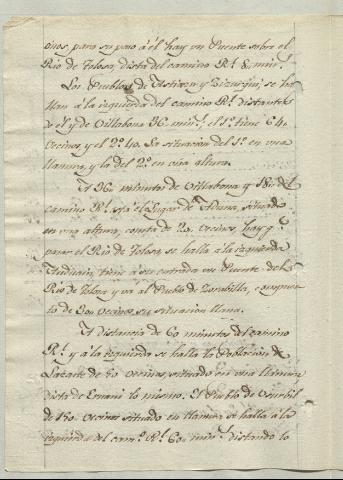 cinos, para su paso á él hay un Puente sobre el
Rio de Tolosa, dista del camino R.l 8 min.s
Los Pueblos de Asteasu y Zizurquil se ha
llan á la izquierda del camino R.l distantes
de él y de Villabona 36 min.s, el 1.º tiene 64
Vecinos, y el 2.º 40. La situacion del 1.º en una
llanura, y la del 2.º en una altura.
A 36 minutos de Villabona y 18 del
camino R.l está el Lugar de Aduna, situado
en una altura, consta de 20 Vecinos, hay q.e
pasar el Rio de Tolosa, se halla á la izquierda
Andoain, tiene á su entrada un Puente del
Rio de Tolosa y vá al Pueblo de Sorabilla, compues
to de Vecinos, su situacion llana.
A distancia de 60 minutos del camino
R.l y á la izquierda se halla la Poblacion de
Lazarte de 50 Vecinos, situado en una llanura
dista de Ernani lo mismo. El Pueblo de Usurbil
de 150 Vecinos situado en llanura se halla á la
izquierda del cam.º R.l 60 min.s distando lo